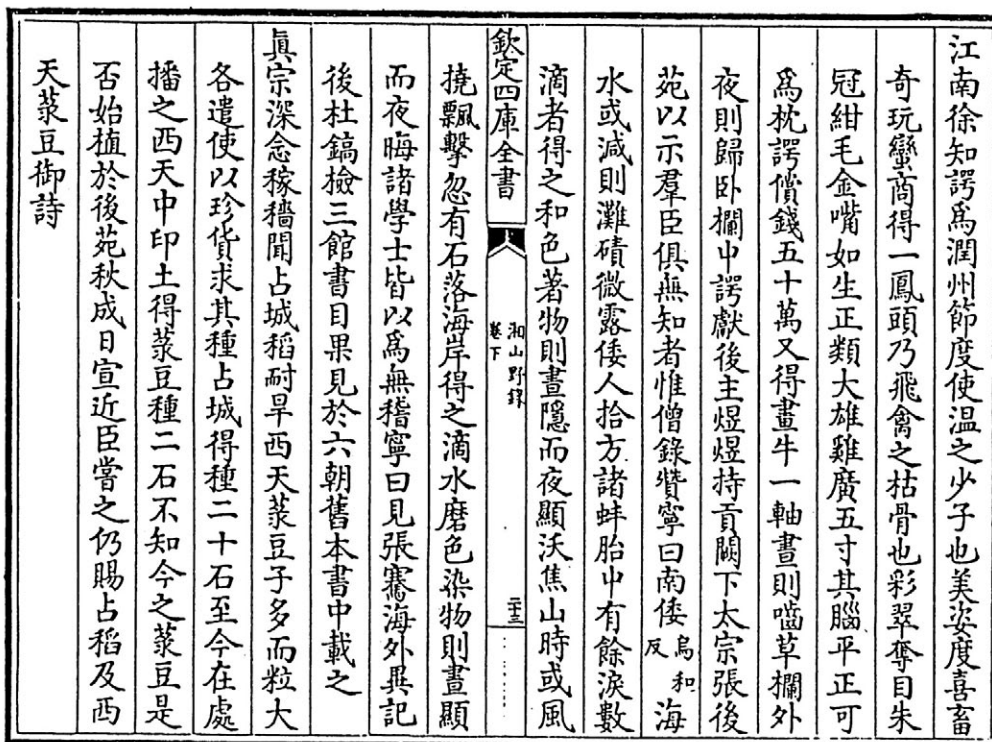 江南徐知諤爲潤州節度使温之少子也美姿度喜畜
奇玩蠻商得一鳳頭乃飛禽之枯骨也彩翠奪目朱
冠紺毛金嘴如生正類大雄雞廣五寸其腦平正可
爲枕諤償錢五十萬又得畫牛一軸晝則嚙草欄外
夜則歸卧欄中諤獻後主煜煜持貢闕下太宗張後
苑以示羣臣俱無知者惟僧錄贊寧曰南倭烏和反海
水或減則灘磧微露倭人拾方諸蚌胎中有餘淚數
滴者得之和色著物則晝隱而夜顯沃焦山時或風
欽定四庫全書 湘山野錄 卷下 二十三
撓飄擊忽有石落海岸得之滴水磨色染物則晝顯
而夜晦諸學士皆以爲無稽寧曰見張騫海外異記
後杜鎬檢三館書目果見於六朝舊本書中載之
眞宗深念稼穡聞占城稻耐旱西天菉豆子多而粒大
各遣使以珍貨求其種占城得種二十石至今在處
播之西天中印土得菉豆種二石不知今之菉豆是
否始植於後苑秋成日宣近臣嘗之仍賜占稻及西
天菉豆御詩